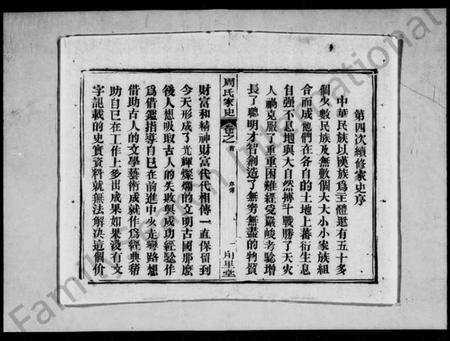 第四次續修家史序
中華民族以漢族爲主體還有五十多
個少數民族及無數個大大小小家族組
合而成他們在各自的土地上蕃衍生息
自强不息地與大自然搏斗戰勝了天灾
人禍克服了重重困難經受嚴峻考驗增
長了聰明才智創造了無窮無盡的物質
周氏家史
卷之首
財富和精神財富代代相傳一直保留到
今天形成了光輝燦爛的文明古國那麽
後人想吸取古人的失敗與成功經驗作
爲借鑑指導自已在前進中少走彎路想
借助古人的文學藝術成就作爲經典幫
助自已在工作上多出成果如果没有文
字記載的史實資料就無法解决這個价
Family International